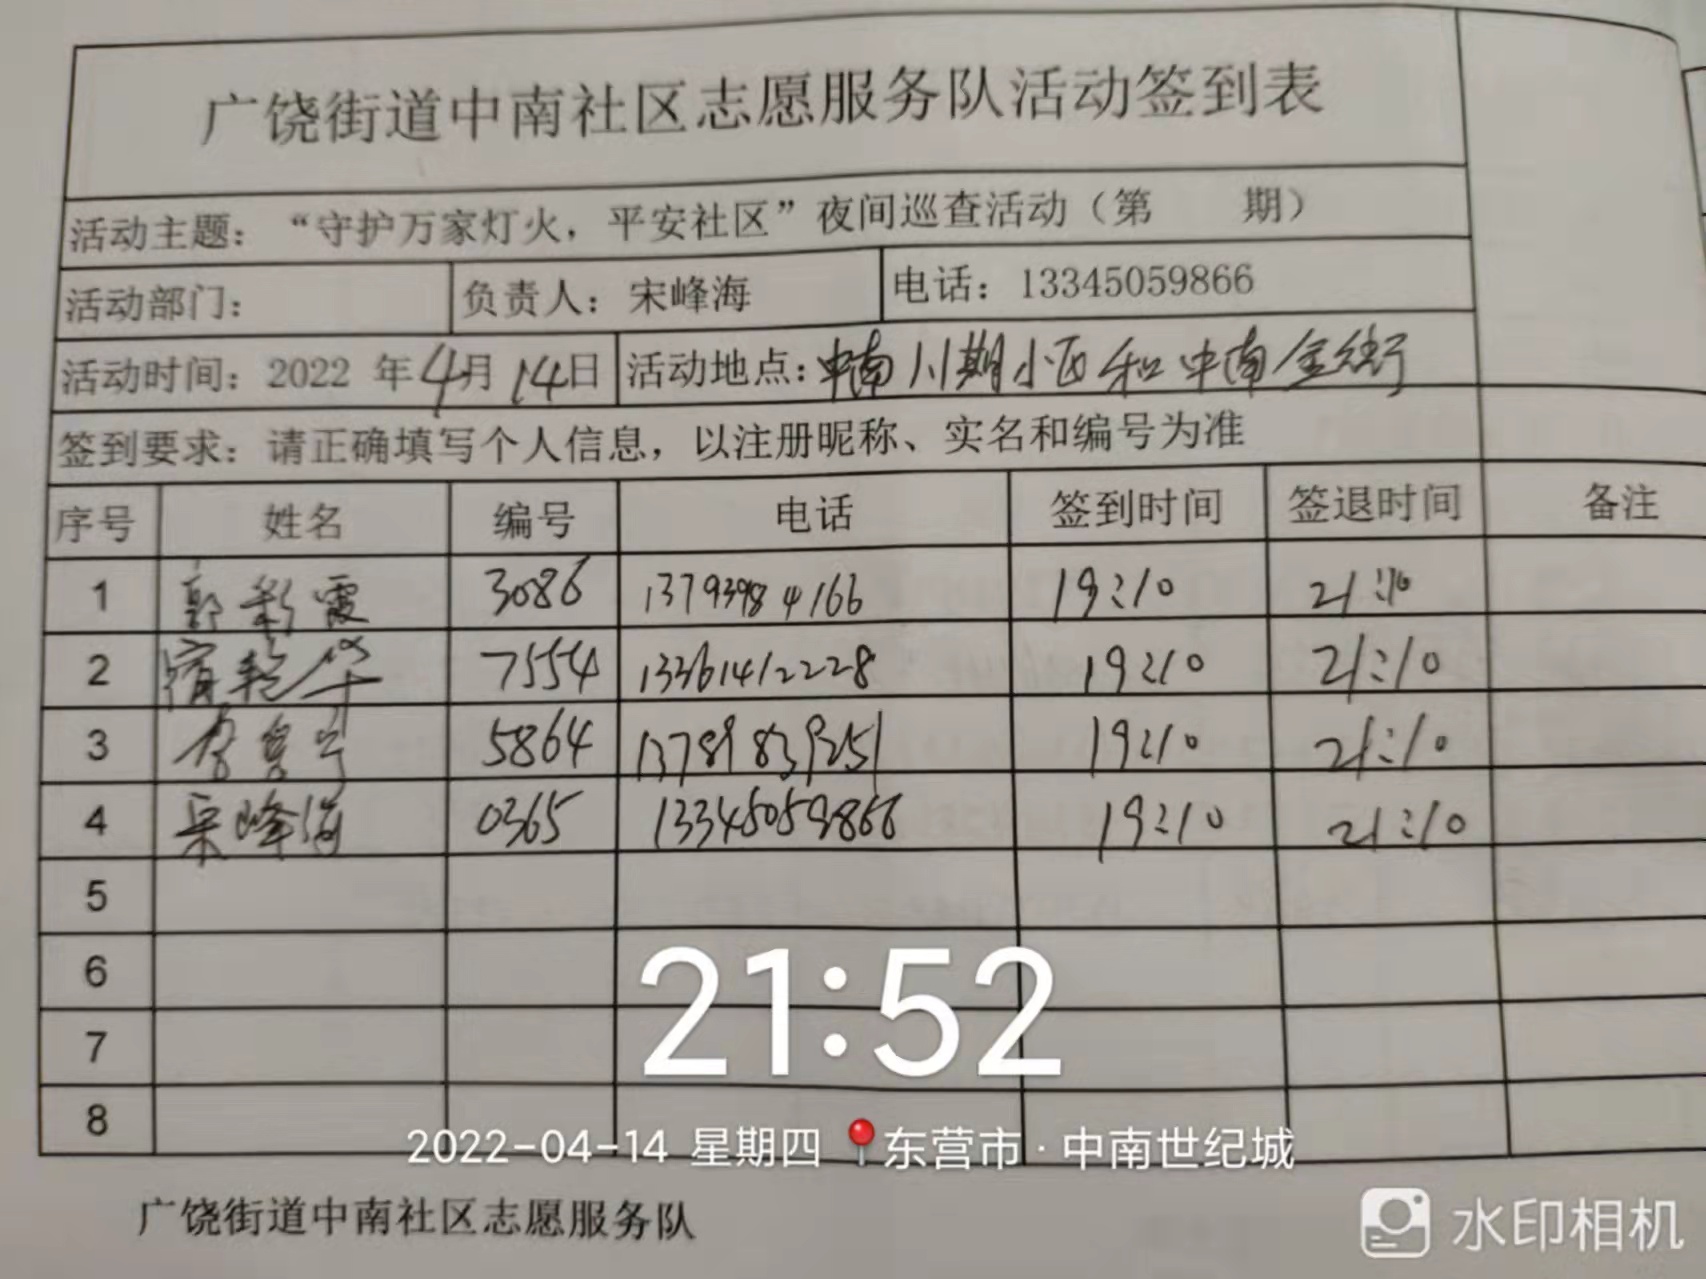 广饶街道中南社区志愿服务队活动签到表
活动主题：“守护万家灯火，平安社区”夜间巡查活动（第 期）
活动部门： 负责人：宋峰海 电话：13345059866
活动时间：2022 年4月14日 活动地点：中南川期小区和中南金街
签到要求：请正确填写个人信息，以注册昵称、实名和编号为准
序号 姓名 编号 电话 签到时间 签退时间 备注
1 郭彩霞 3086 13793984166 19:10 21:10
2 7554 13361412228 19:10 21:10
3 5864 13789839251 19:10 21:10
4 宋峰海 0365 13345059866 19:10 21:10
5
6
7
8
21:52
2022-04-14 星期四 东营市·中南世纪城
广饶街道中南社区志愿服务队
水印相机